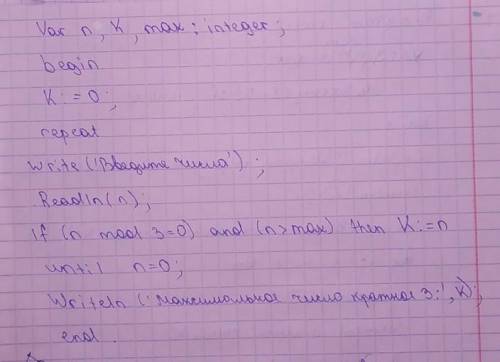 Var n, K, max : integer;
begin
K := 0;
repeat
write ('Введите числа');
Readln (n);
If (n mod 3=0) and (n>max) then K:=n
until n=0;
Writeln ('Максимальное число кратное 3:', K);
end.